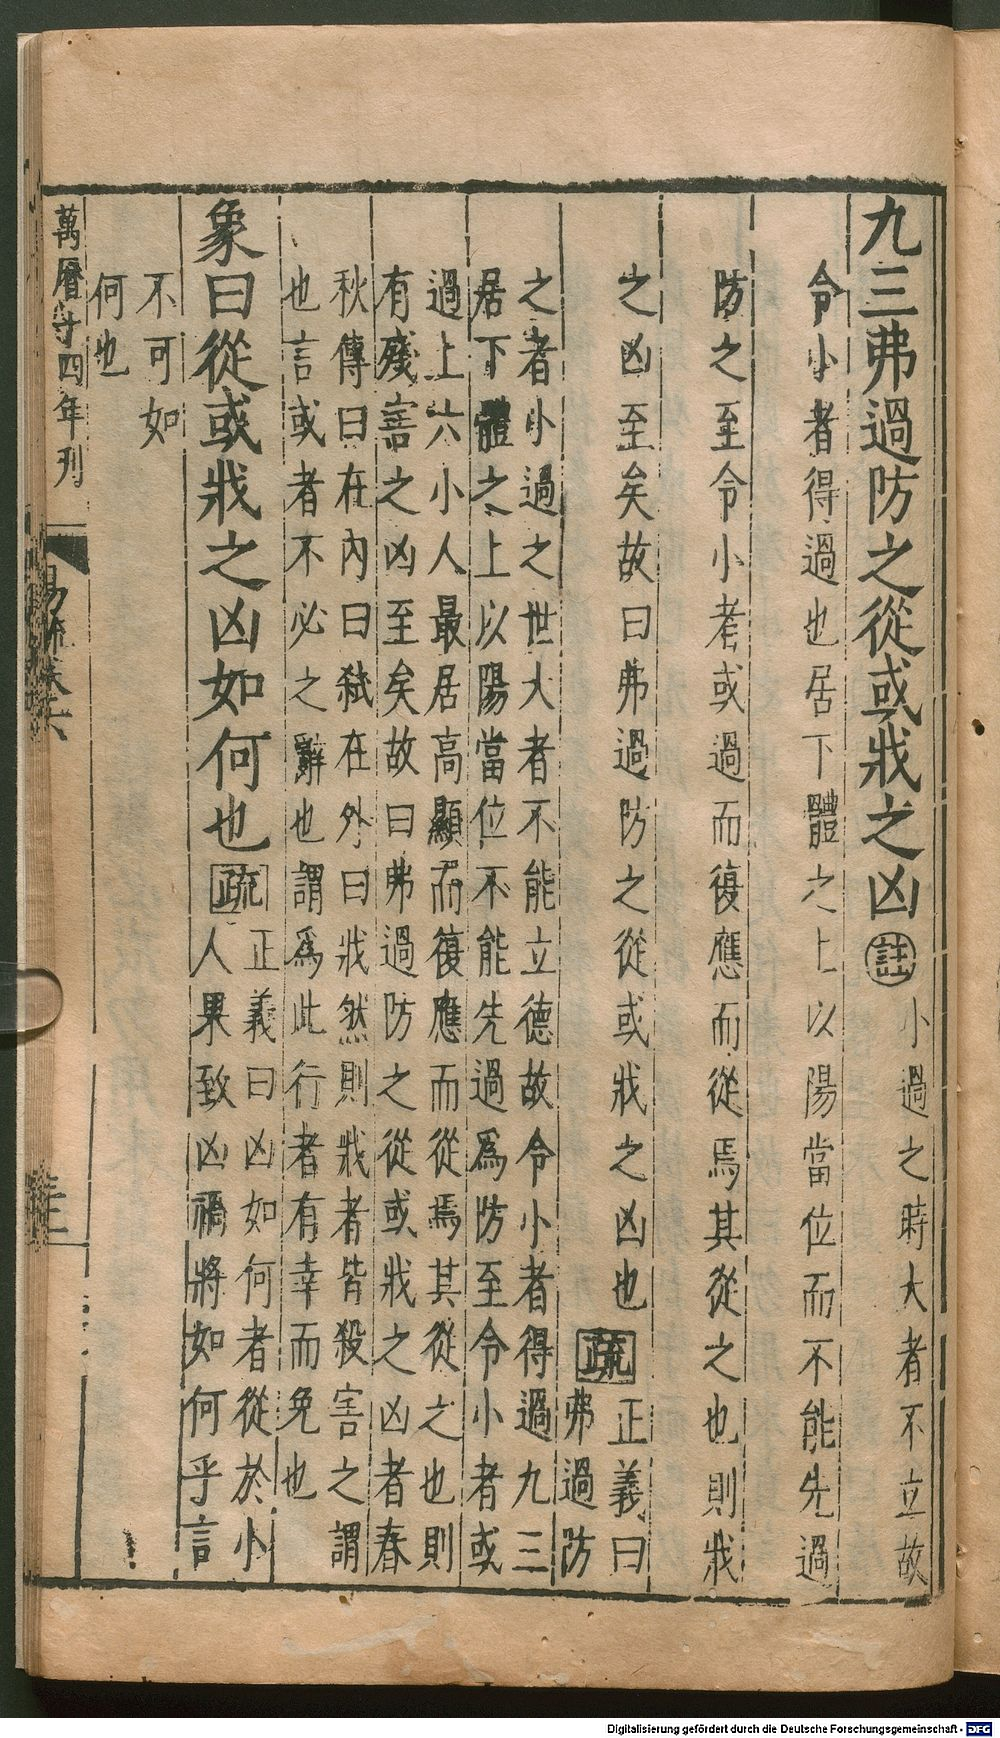 九三弗過防之從或戕之凶註小過之時大者不立故
令小者得過也居下體之上以陽當位而不能先過
防之至令小者或過而復應而從焉其從之也則戕
之凶至矣故曰弗過防之從或戕之凶也疏正義曰
弗過防
之者小過之世大者不能立德故令小者得過九三
居下體之上以陽當位不能先過爲防至令小者或
過上六小人最居高顯而復應而從焉其從之也則
有殘害之凶至矣故曰弗過防之從或戕之凶者春
秋傳曰在內曰弒在外曰戕然則戕者皆殺害之謂
也言或者不必之辭也謂爲此行者有幸而免也
象曰從或戕之凶如何也疏正義曰凶如何者從於小
人果致凶禍將如何乎言
不可如
何也
萬曆十四年刊
易疏卷六
Digitalisierung gefördert durch die Deutsche Forschungsgemeinschaft - DFG